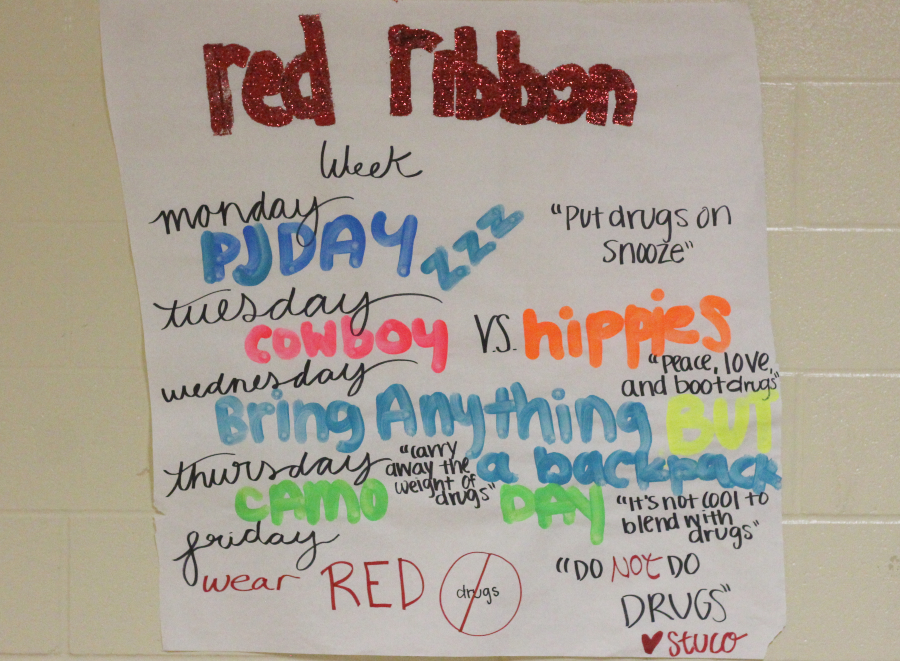 red ribbon
Week
monday
PJ DAY zzz
"Put drugs on
snooze"
tuesday
COWBOY V.S. hippies
"Peace, love,
and boot drugs"
wednesday
Bring Anything BUT
a backpack
"carry
away the
weight of
drugs"
thursday
CAMO DAY
"It's not cool to
blend with
drugs"
friday
wear RED
drugs
"DO NOT DO
DRUGS"
♥ STUCO